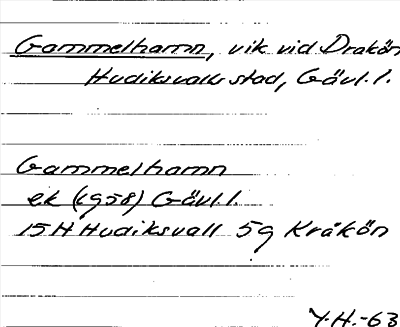 Gammelhamn, vik vid Drakön
Hudiksvalls stad, Gävl.l.
Gammelhamn
ek (1958) Gävl.l.
15H Hudiksvall 5g Kråkön
Y.H.-63